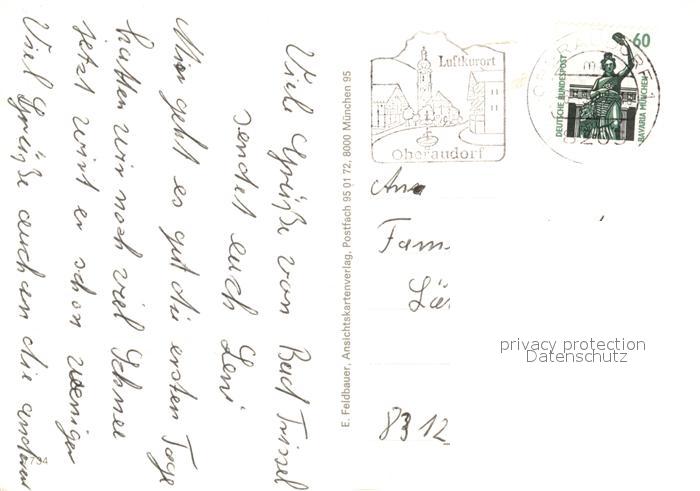 Viele Grüße von Bad Trissel
sendet euch Leni
Mir geht es gut die ersten Tage
hatten wir noch viel Schnee
jetzt wird er schon weniger
Viel Grüße auch an die anderen
E. Feldbauer, Ansichtskartenverlag, Postfach 95 01 72, 8000 München 95
Luftkurort
Oberaudorf
OBERAUDORF 1
60
DEUTSCHE BUNDESPOST
BAVARIA MÜNCHEN
An
Fam.
8312
privacy protection
Datenschutz